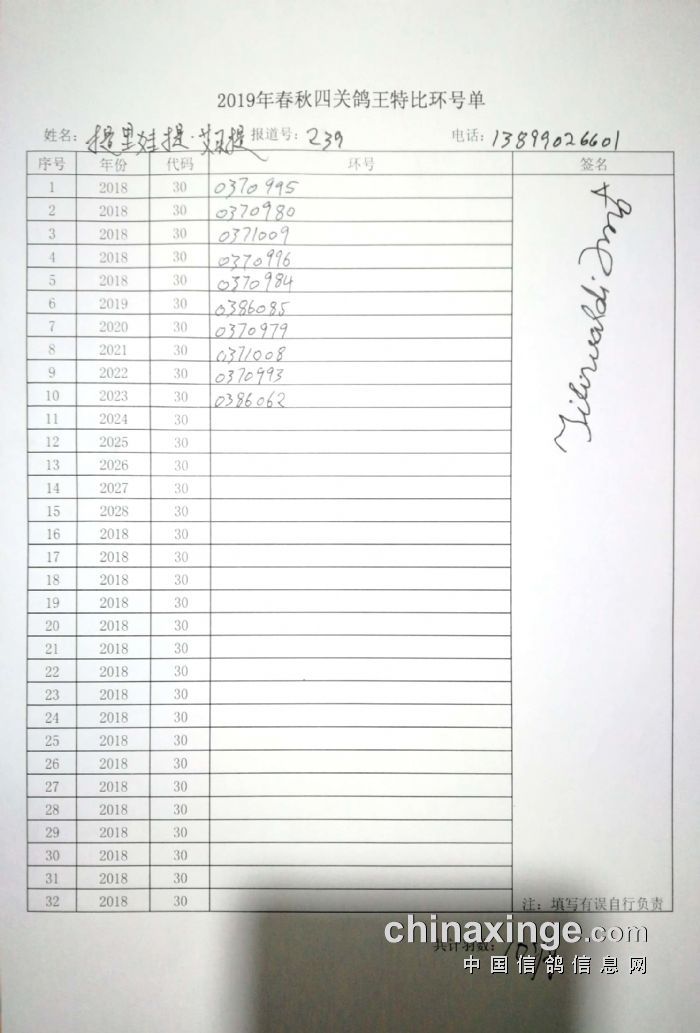 2019年春秋四关鸽王特比环号单
姓名：提里娃提·艾提 报道号：239 电话：13899026601
序号 年份 代码 环号 签名
1 2018 30 0370995
2 2018 30 0370980
3 2018 30 0371009
4 2018 30 0370996
5 2018 30 0370984
6 2019 30 0386085
7 2020 30 0370979
8 2021 30 0371008
9 2022 30 0370993
10 2023 30 0386062
11 2024 30
12 2025 30
13 2026 30
14 2027 30
15 2028 30
16 2018 30
17 2018 30
18 2018 30
19 2018 30
20 2018 30
21 2018 30
22 2018 30
23 2018 30
24 2018 30
25 2018 30
26 2018 30
27 2018 30
28 2018 30
29 2018 30
30 2018 30
31 2018 30
32 2018 30
注：填写有误自行负责
共计羽数：10羽
chinaxinge.com
中国信鸽信息网